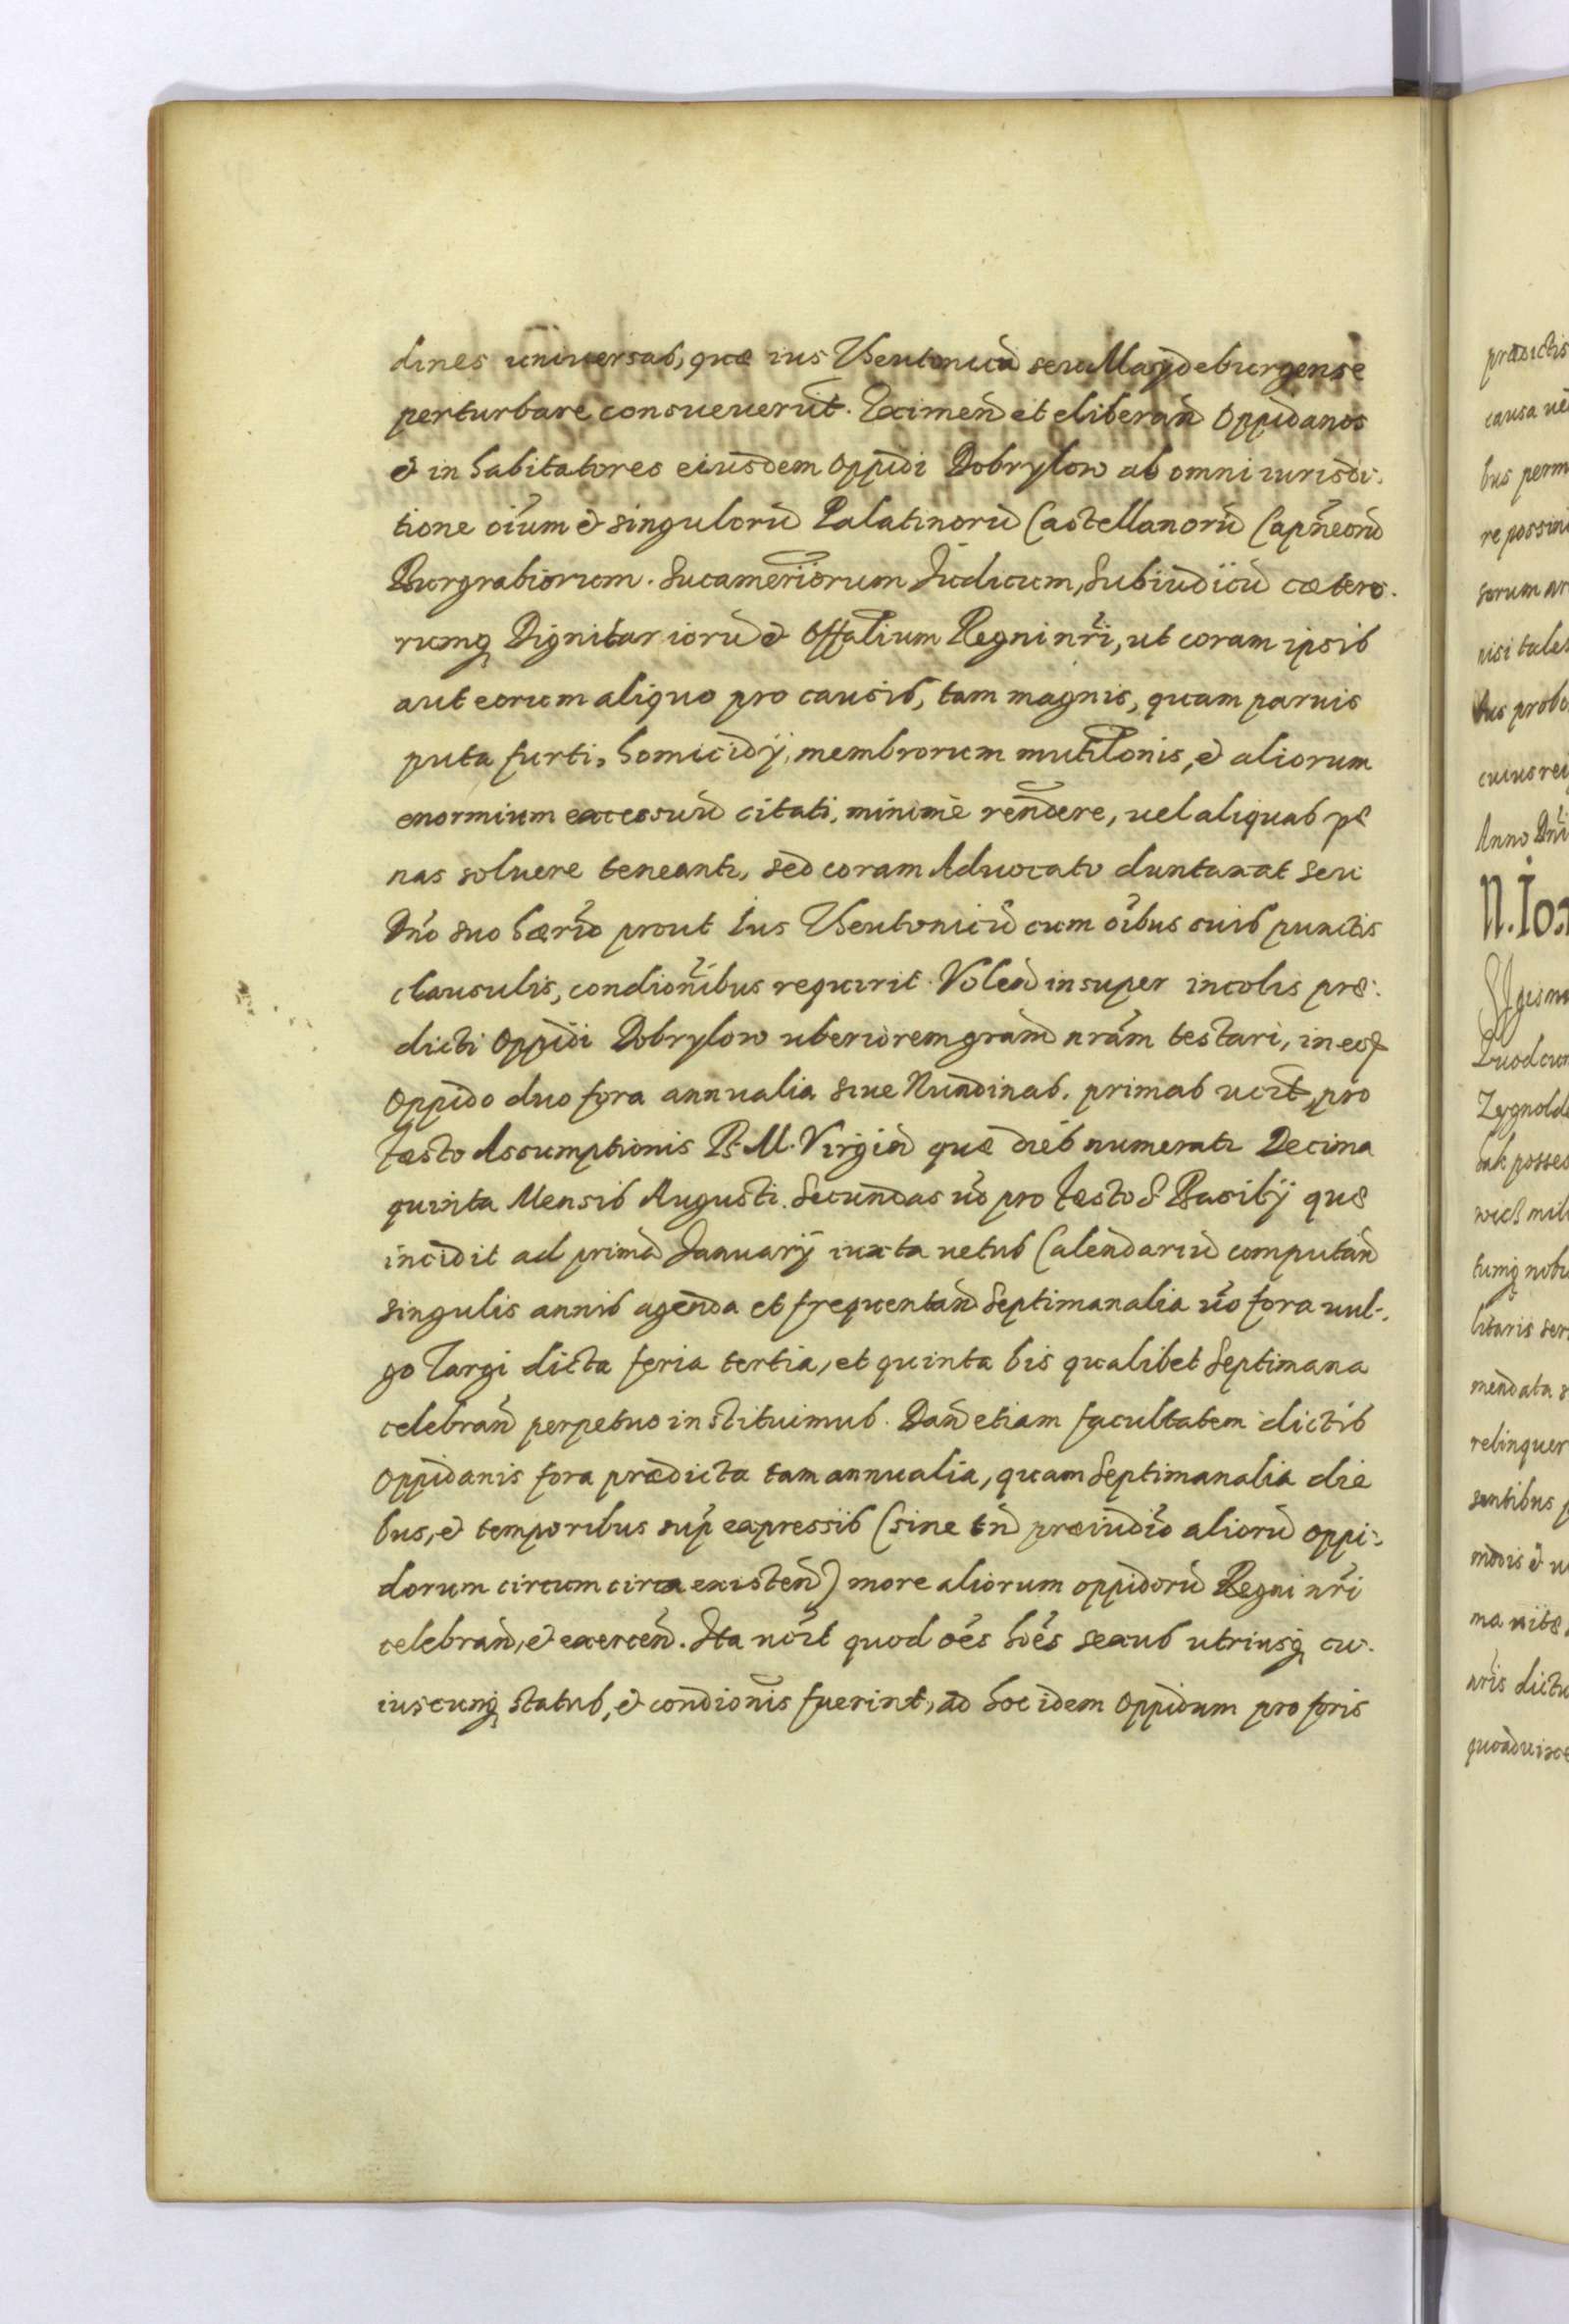 dines universas, quæ ius Theutonicũ seu Magdeburgense
perturbare consueverũt. Eximen̄ et eliberan̄ Oppidanos
& inhabitatores eiusdem Oppidi Dobrylow ab omni iurisdi-
tione oĩum & singulorũ Palatinorũ Castellanorũ Capn̄eorũ
Burgrabiorum. Sucamerĩorum Judicum, Subiudicũ cætero-
rumq Dignitariorũ & Offalium Regni nr̃i, ut coram ipsis
aut eorum aliquo pro causis, tam magnis, quam parvis
puta furti, homicidij, membrorum mutilonis, & aliorum
enormium excessuũ citati, minime rendere, uel aliquas pę
nas soluere teneantr, sed coram Aduocato duntaxat seu
Dño suo hærio prout Ius Theutonicũ cum oĩbus suis punctis
clausulis, condionĩbus requirit. Volen̄ insuper incolis præ-
dicti Oppidi Dobrylow uberiorem gram̄ nrãm testari, in eod
Oppido duo fora annualia siue Nundinas. primas ucit, pro
Fæsto Assumptionis B. M. Virgin̄ quæ dies numeratr Decima
quinta Mensis Augusti. Secundas uõ pro Fæsto S. Basilij quę
incidit ad primã Januarij iuxta uetus Calendariũ computan̄
singulis annis agenda et frequentan̄ Septimanalia uõ fora uul-
go Targi dicta feria tertia, et quinta bis qualibet Septimana
celebran̄ perpetuo instituimus. Dan̄ etiam facultatem dictis
Oppidanis fora prædicta tam annualia, quam Septimanalia die
bus, & temporibus sup̃ expressis (sine tñ præiudĩo aliorũ oppi-
dorum circum circa existen̄) more aliorum oppidorũ Regni nr̃i
celebran̄, & exercen̄. Ita uõit quod oẽs hoẽs sexus utriusq cu-
iuscunq status, & condionis fuerint, ad hoc idem Oppidum pro foris
prædictis
causa
bus perm
re possin
sorum
nisi tales
probo
cuius rei
Anno Dñi
N. Io.
Quod cun
Zygnold
bak posses
wich mil
tumq nobi
litaris ser
mendata s
relinquer
sentibus p
modis &
nr̃is dictu